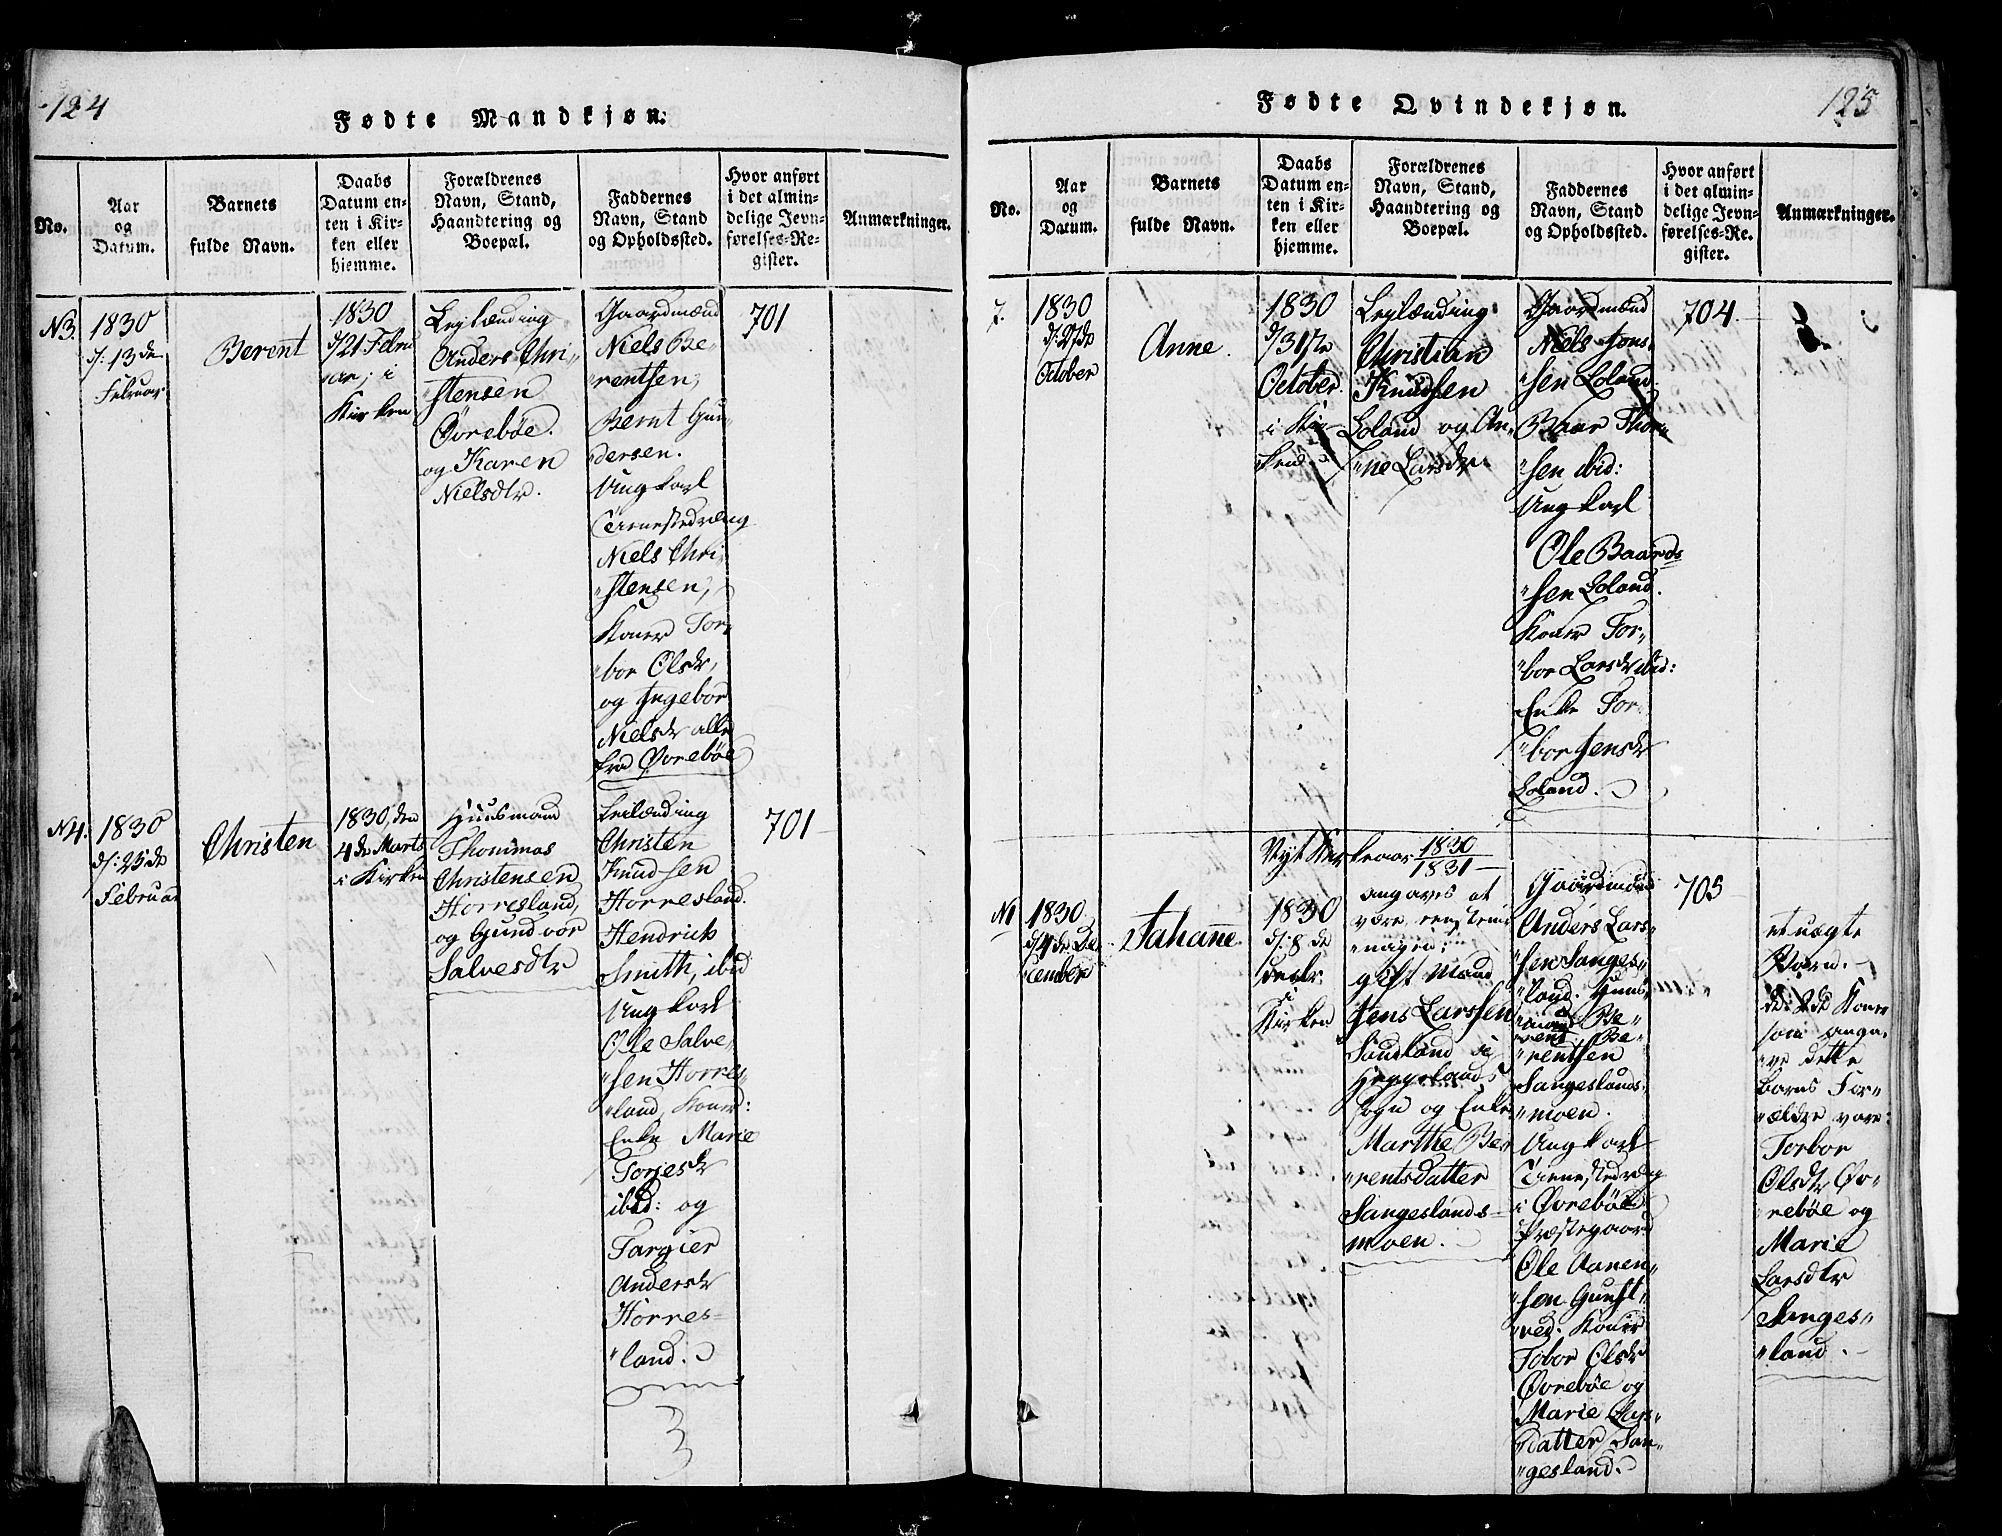 124
Fødte Mandkjøn.
No.
Aar
og
Datum.
Barnets
fulde Navn.
Daabs
Datum en-
ten i Kir-
ken eller
hjemme.
Forældrenes
Navn, Stand,
Haandtering og
Boepæl.
Faddernes
Navn, Stand
og Opholdssted.
Hvor anført
i det almin-
delige Jevn-
førelses-Re-
gister.
Anmærkninger.
N3.
1830
d: 13de
Februar
Berent
1830
d/21 Febru
ar; i
Kirken
Leylænding
Anders Chri-
"stensen
Øvrebøe.
og Karen
Nielsdtr.
Gaardmænd
Niels Be-
rentsen,
Bernt Gun-
"dersen.
Ungkarl
Tienestedræng
Niels Chri-
"stensen,
Koner Tor-
"bor Olsdr,
og Ingebor
Nielsdr alle
fra Øvrebøe
701
N4.
1830
d: 25de
Februar
Christen
1830, den
4de Marts
i Kirken
Huusmand
Thommas
Christensen
Horresland,
og Gundvor
Salvesdtr
Leilænding
Christen
Knudsen
Horresland.
Hendrich
Smith, ibid
Ungkarl
Ole Salve-
"sen Horres-
"land, Koner:
Enke Marie
Torjesdr
ibid: og
Targier
Andersdr
Horres-
"land.
701
125
Fødte Qvindekjøn.
No.
Aar
og
Datum.
Barnets
fulde Navn.
Daabs
Datum en-
ten i Kir-
ken eller
hjemme.
Forældrenes
Navn, Stand,
Haandtering og
Boepæl.
Faddernes
Navn, Stand
og Opholdssted.
Hvor anført
i det almin-
delige Jevn-
førelses-Re-
gister.
Anmærkninger.
7.
1830
d: 27de
October
Anne.
1830
d/31te
October
i Kir-
"ken
Leylænding
Christian
Knudsen
Loland og An-
"ne Larsdr.
Gaardmænd
Niels Jons-
"sen Loland.
Baar Thor-
"sen ibid:
Ungkarl
Ole Baards
"sen Loland.
Koner Tor-
"bor Larsdr ibid:
Enke Tor-
"bor Jensdr
Loland.
704
Nyt Kirkeaar 1830
1831
N1
1830
d/4de De
"cember
Johanne
1830
d: 8de
Decbr.
i
Kirken
angaves at
være
gift Mand
Jens Larssen
Sangesland
sogn og Enke
Marthe Be-
"rentsdatter
Sangeslands-
moen.
Gaardmænd
Anders Lars-
"sen Sanges-
"land. Huus-
"mænd Be-
"rent Be-
"rentsen
Sangeslands-
"moen.
Ungkarl
Tienestedræng
i Øvrebøe
Præstegaard
Ole Aanen-
"sen
Koner
Tobor Olsdr
Øvrebøe og
Marie Lars-
"datter San-
"gesland.
705
et uægte
Barn.
de 2de Koner
som anga-
"ve dette
Barns For-
"ældre vare:
Torbor
Olsdtr Øv-
"rebøe og
Marie
Larsdtr
Sanges-
"land.